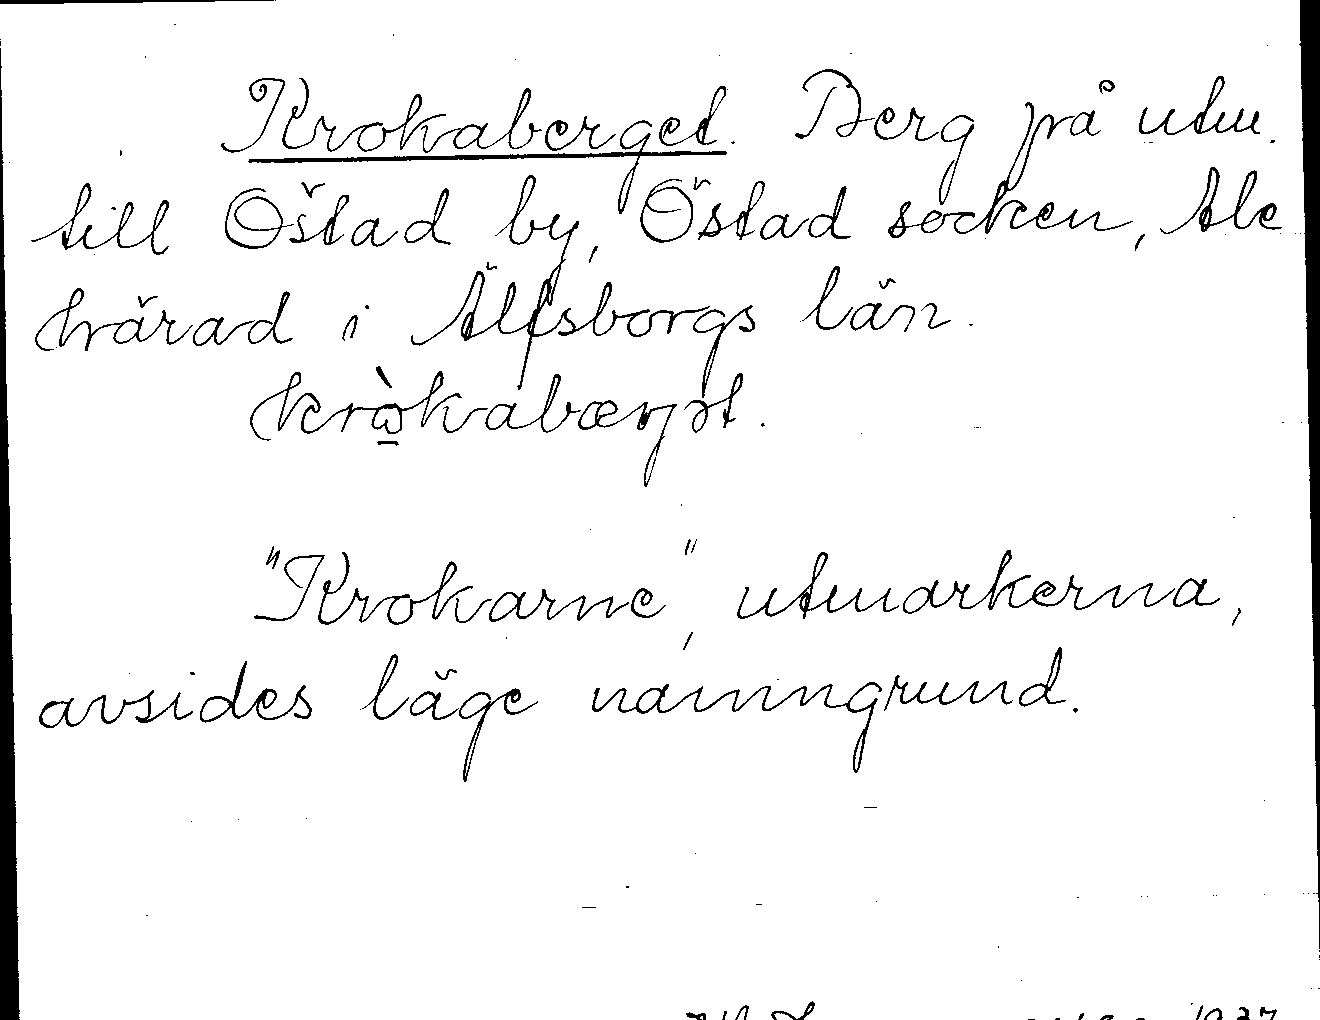 Krokaberget. Berg på utm.
till Östad by, Östad socken, Ale
härad i Älfsborgs län.
kràkabærjət.
"Krokarne", utmarkerna,
avsides läge namngrund.
1937